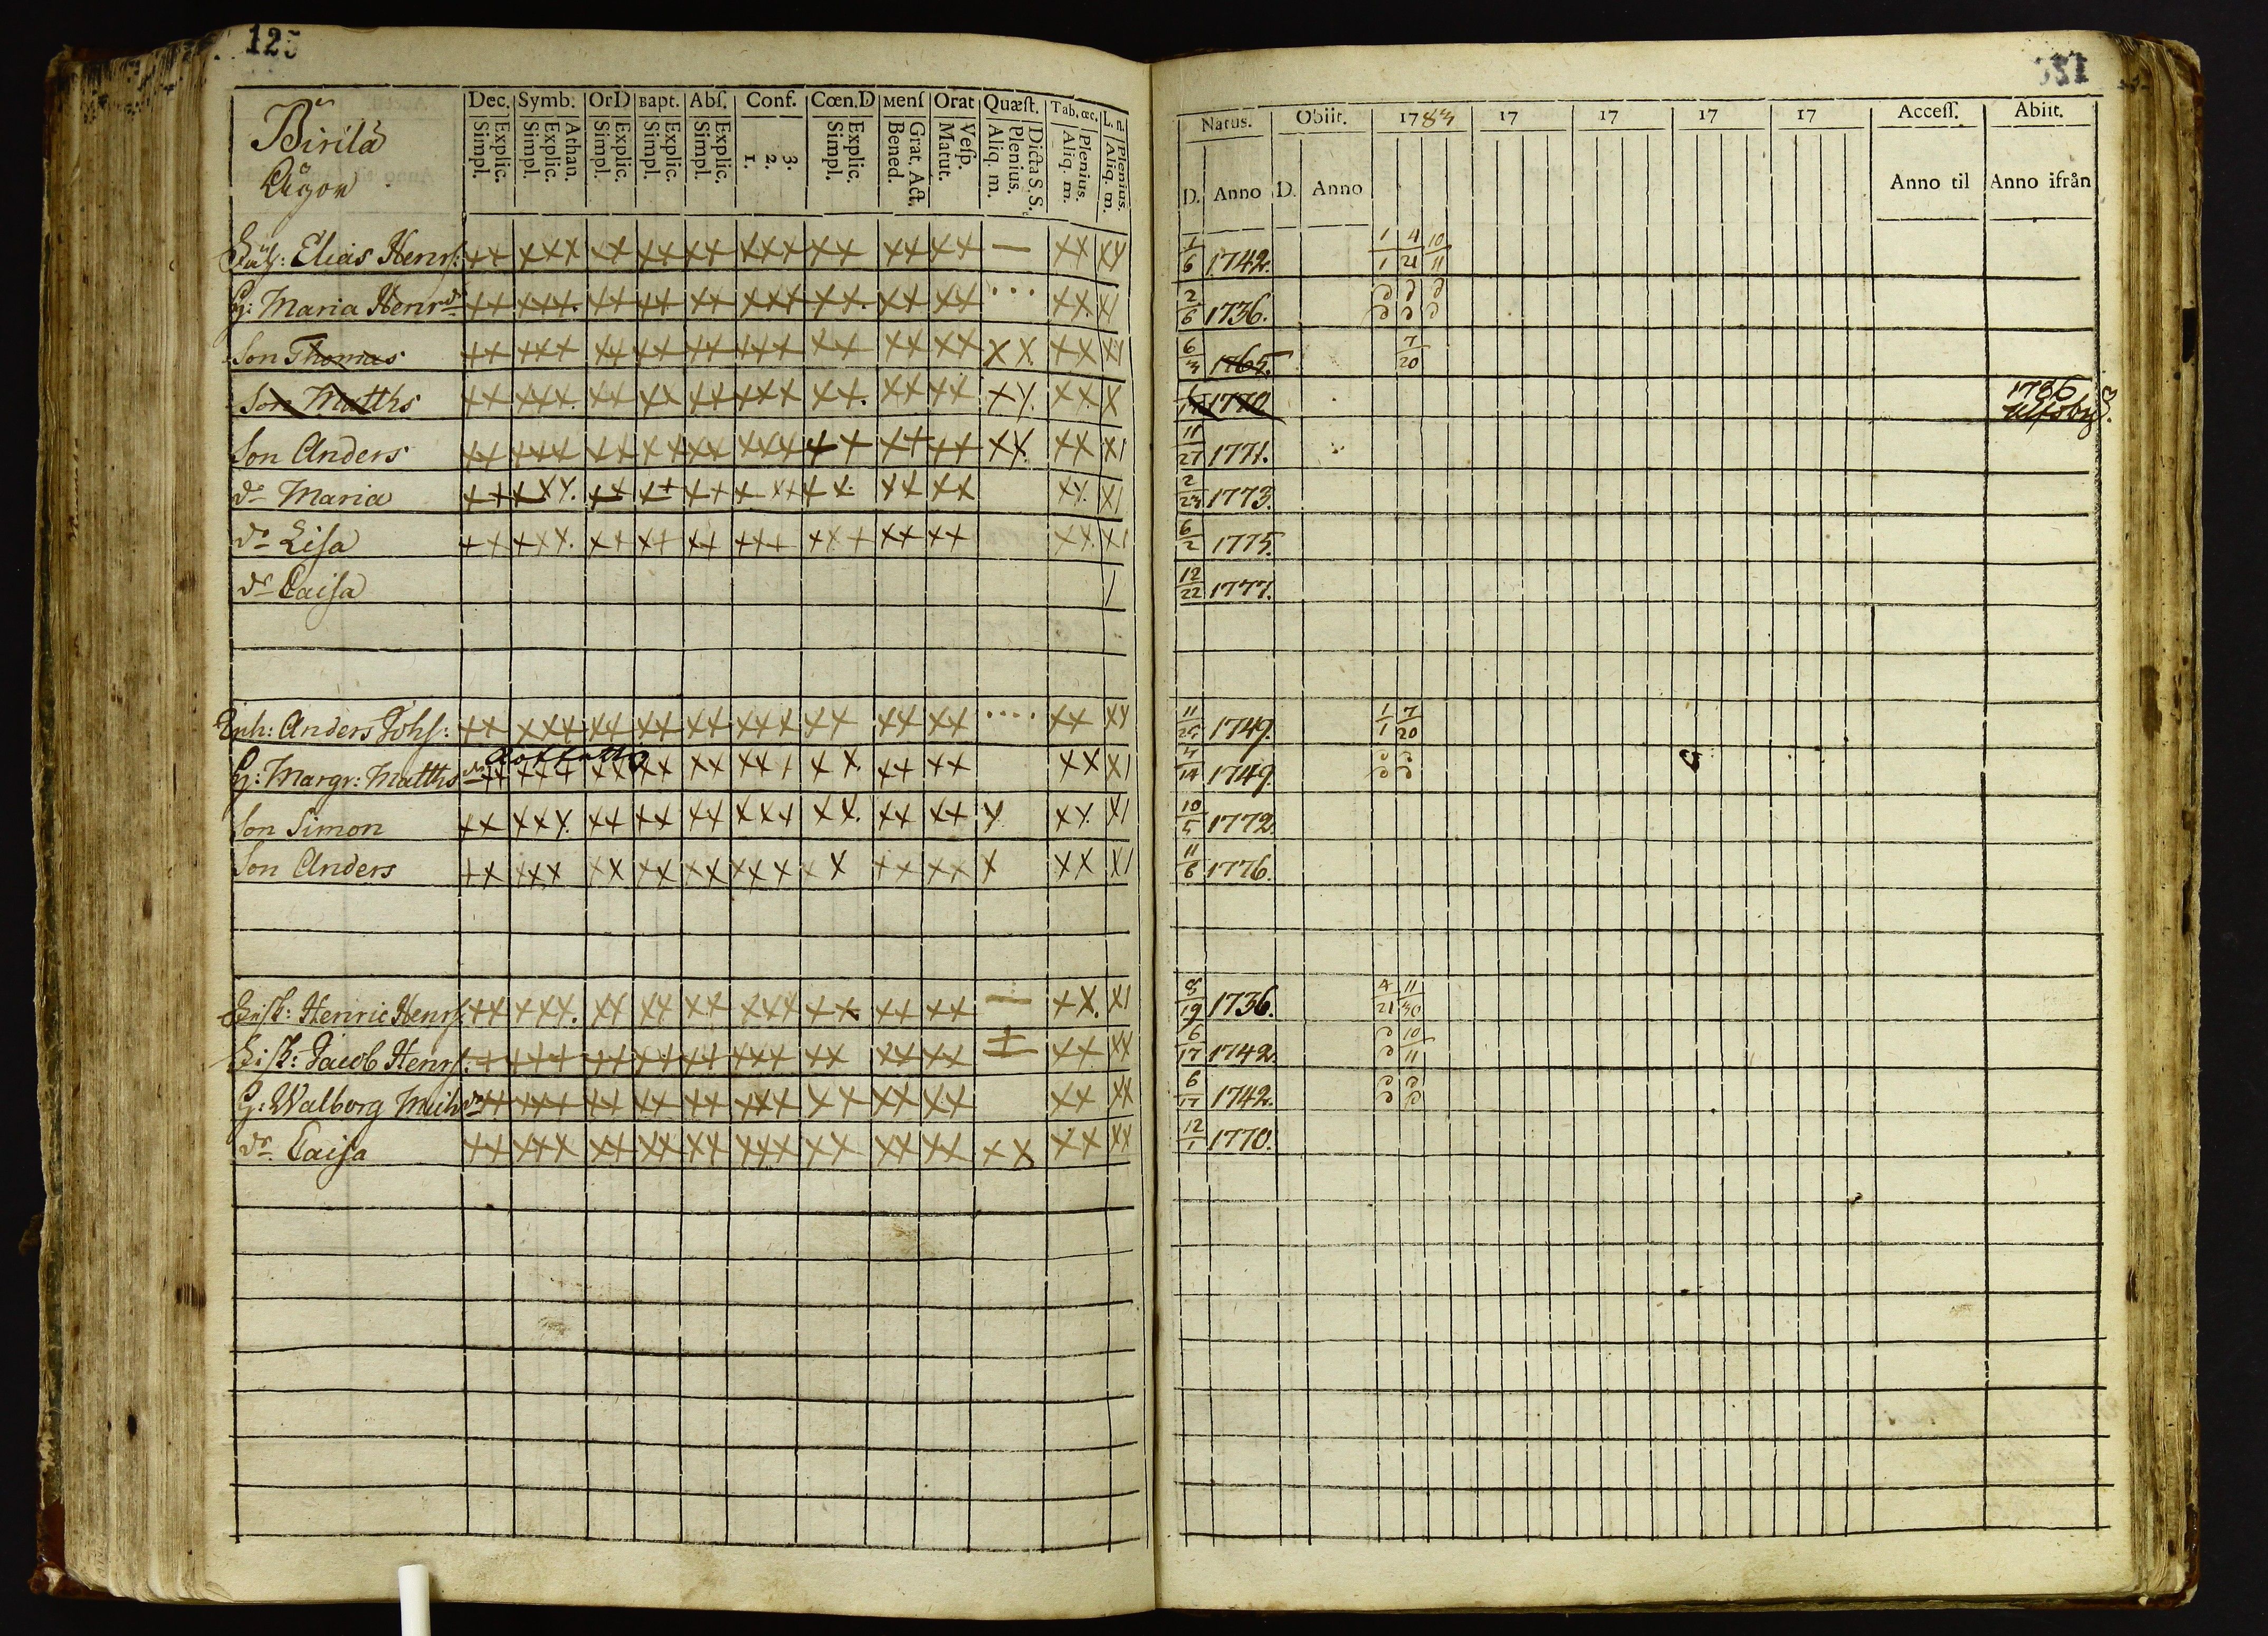 125
Birilä
Ägor
Dec. Symb. OrD Bapt. Abſ. Conf. Cœn.D Menſ Orat Quæſt. Tab. œc. L. n.
Explic. Simpl. Athan. Explic. Simpl. Explic. Simpl. Explic. Simpl. Explic. Simpl. 3. 2. 1. Explic. Simpl. Grat. Act. Bened. Veſp. Matut. Dicta S. S. Plenius. Aliq. m. Plenius. Aliq. m. Plenius. Aliq. m.
Natus. Obiit. 1783 17 17 17 17 Acceſſ. Abiit.
D. Anno D. Anno Anno til Anno ifrån
Elias Henrſ: 1/6 1742. 1/1 4/21 10/11
H: Maria Henrdr 2/6 1736.
Son Thomas 6/3 1765. 7/20
Son Matths 1770 1786 Ulfsby
Son Anders 11/27 1771.
dr Maria 2/23 1773.
dr Liſa 6/2 1775.
dr Caiſa 12/22 1777.
Inh: Anders Johſ: 11/25 1749. 1/1 7/20
H: Margr: Matthsdr 1749.
Son Simon 10/5 1772.
Son Anders 11/6 1776.
Henric Henrſ: 8/19 1736. 4/21 11/30
Jacob Henrſ: 6/17 1742. 10/11
H: Walborg Michdr 6/17 1742.
dr Caiſa 12/1 1770.